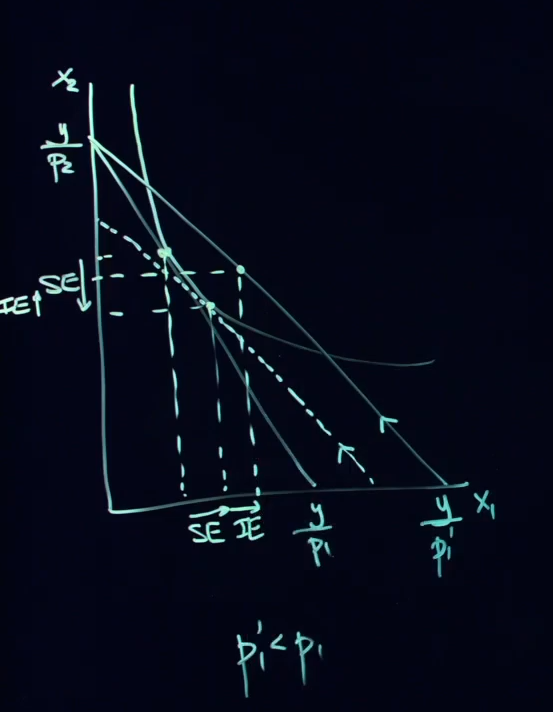 x₂
y
p₂
SE↓
IE↑
SE IE
y
p₁
y
p₁'
x₁
p₁' < p₁